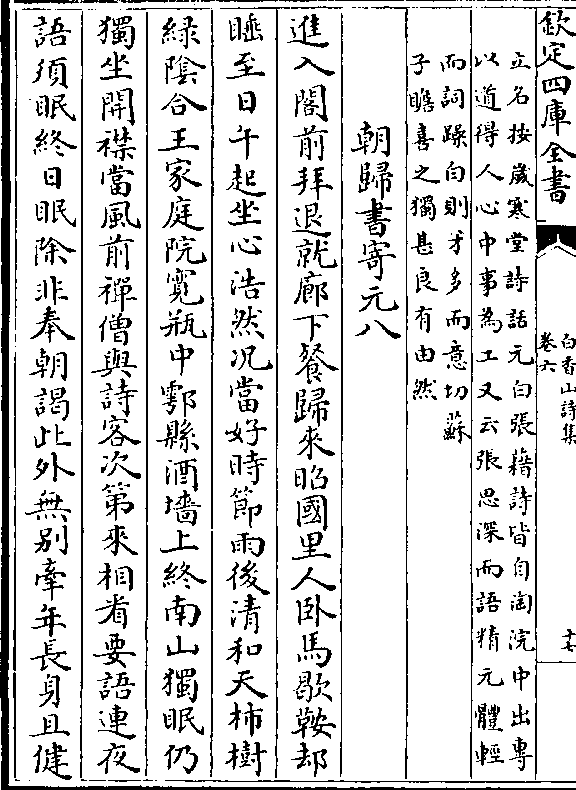 欽定四庫全書
白香山詩集
卷六
十七
立名按歲寒堂詩話元白張籍詩皆自陶阮中出專
以道得人心中事為工又云張思深而語精元體輕
而詞躁白則才多而意切蘇
子瞻喜之獨甚良有由然
朝歸書寄元八
進入閤前拜退就廊下餐歸來昭國里人卧馬歇鞍却
睡至日午起坐心浩然况當好時節雨後清和天柿樹
綠陰合王家庭院寛瓶中鄠縣酒墻上終南山獨眠仍
獨坐開襟當風前禪僧與詩客次第來相看要語連夜
語須眠終日眠除非奉朝謁此外無别牽年長身且健